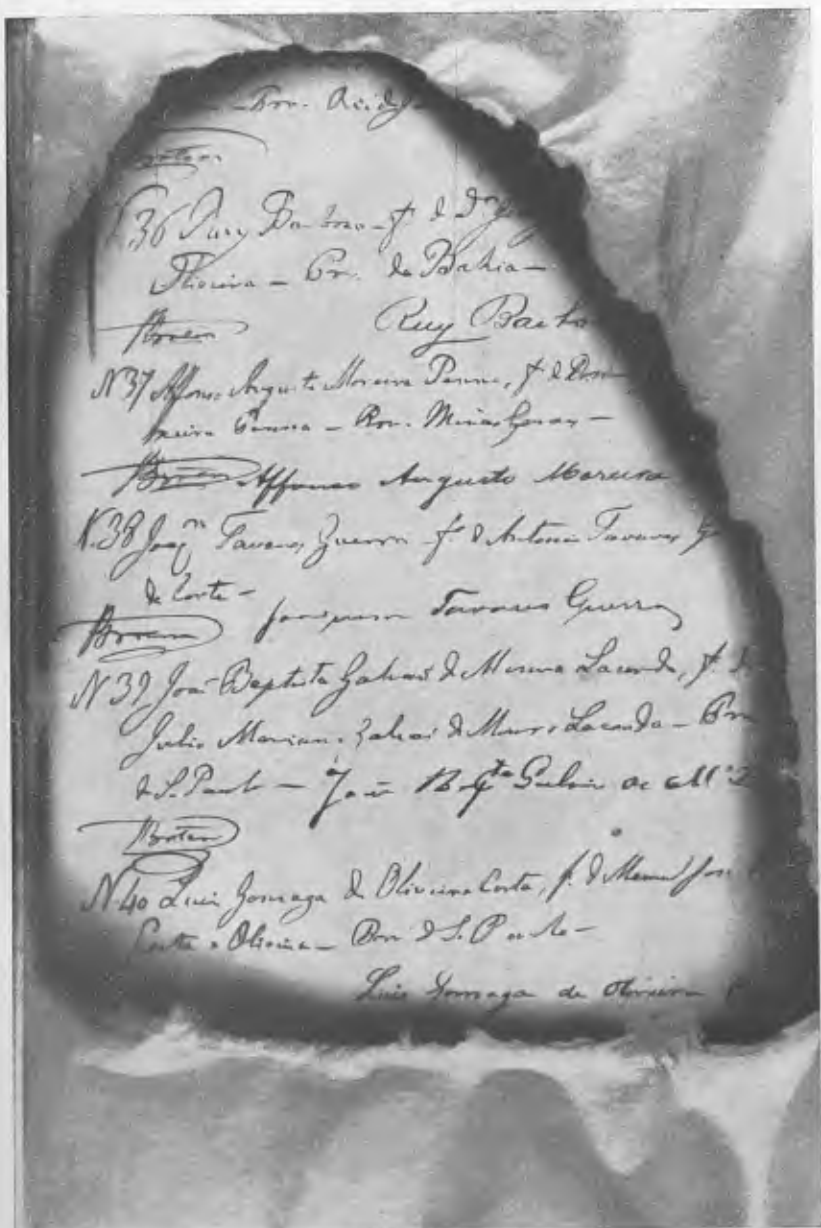 Prov.
N. 36 Ruy Barbosa f. de Dr.
Oliveira – Pr. da Bahia –
Ruy Barbo
N 37 Affonso Augusto Moreira Penna, f. de Dom
reira Penna – Prov. Minas Geraes –
Affonso Augusto Moreira
N. 38 Joaqm Tavares Guerra f. de Antonio Tavares G
da Corte –
Joaquim Tavares Guerra
N 39 João Baptista Galvão de Moura Lacerda, f. de
Julio Mariano Galvão de Moura Lacerda – Prov
de S. Paulo – João Bapta Galvão de Ma L
N 40 Luis Gonzaga de Oliveira Costa, f. de Manoel José
Costa e Oliveira – Prov de S. Paulo –
Luis Gonzaga de Oliveira